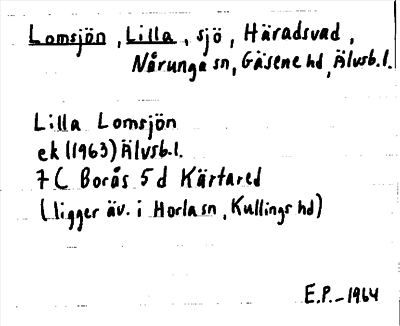 Lomsjön, Lilla, sjö, Häradsvad,
Nårunga sn, Gäsene hd, Älvsb.l.
Lilla Lomsjön
ek (1963) Älvsb.l.
7 C Borås 5 d Kärtared
(ligger äv. i Horla sn, Kullings hd)
E.P. - 1964